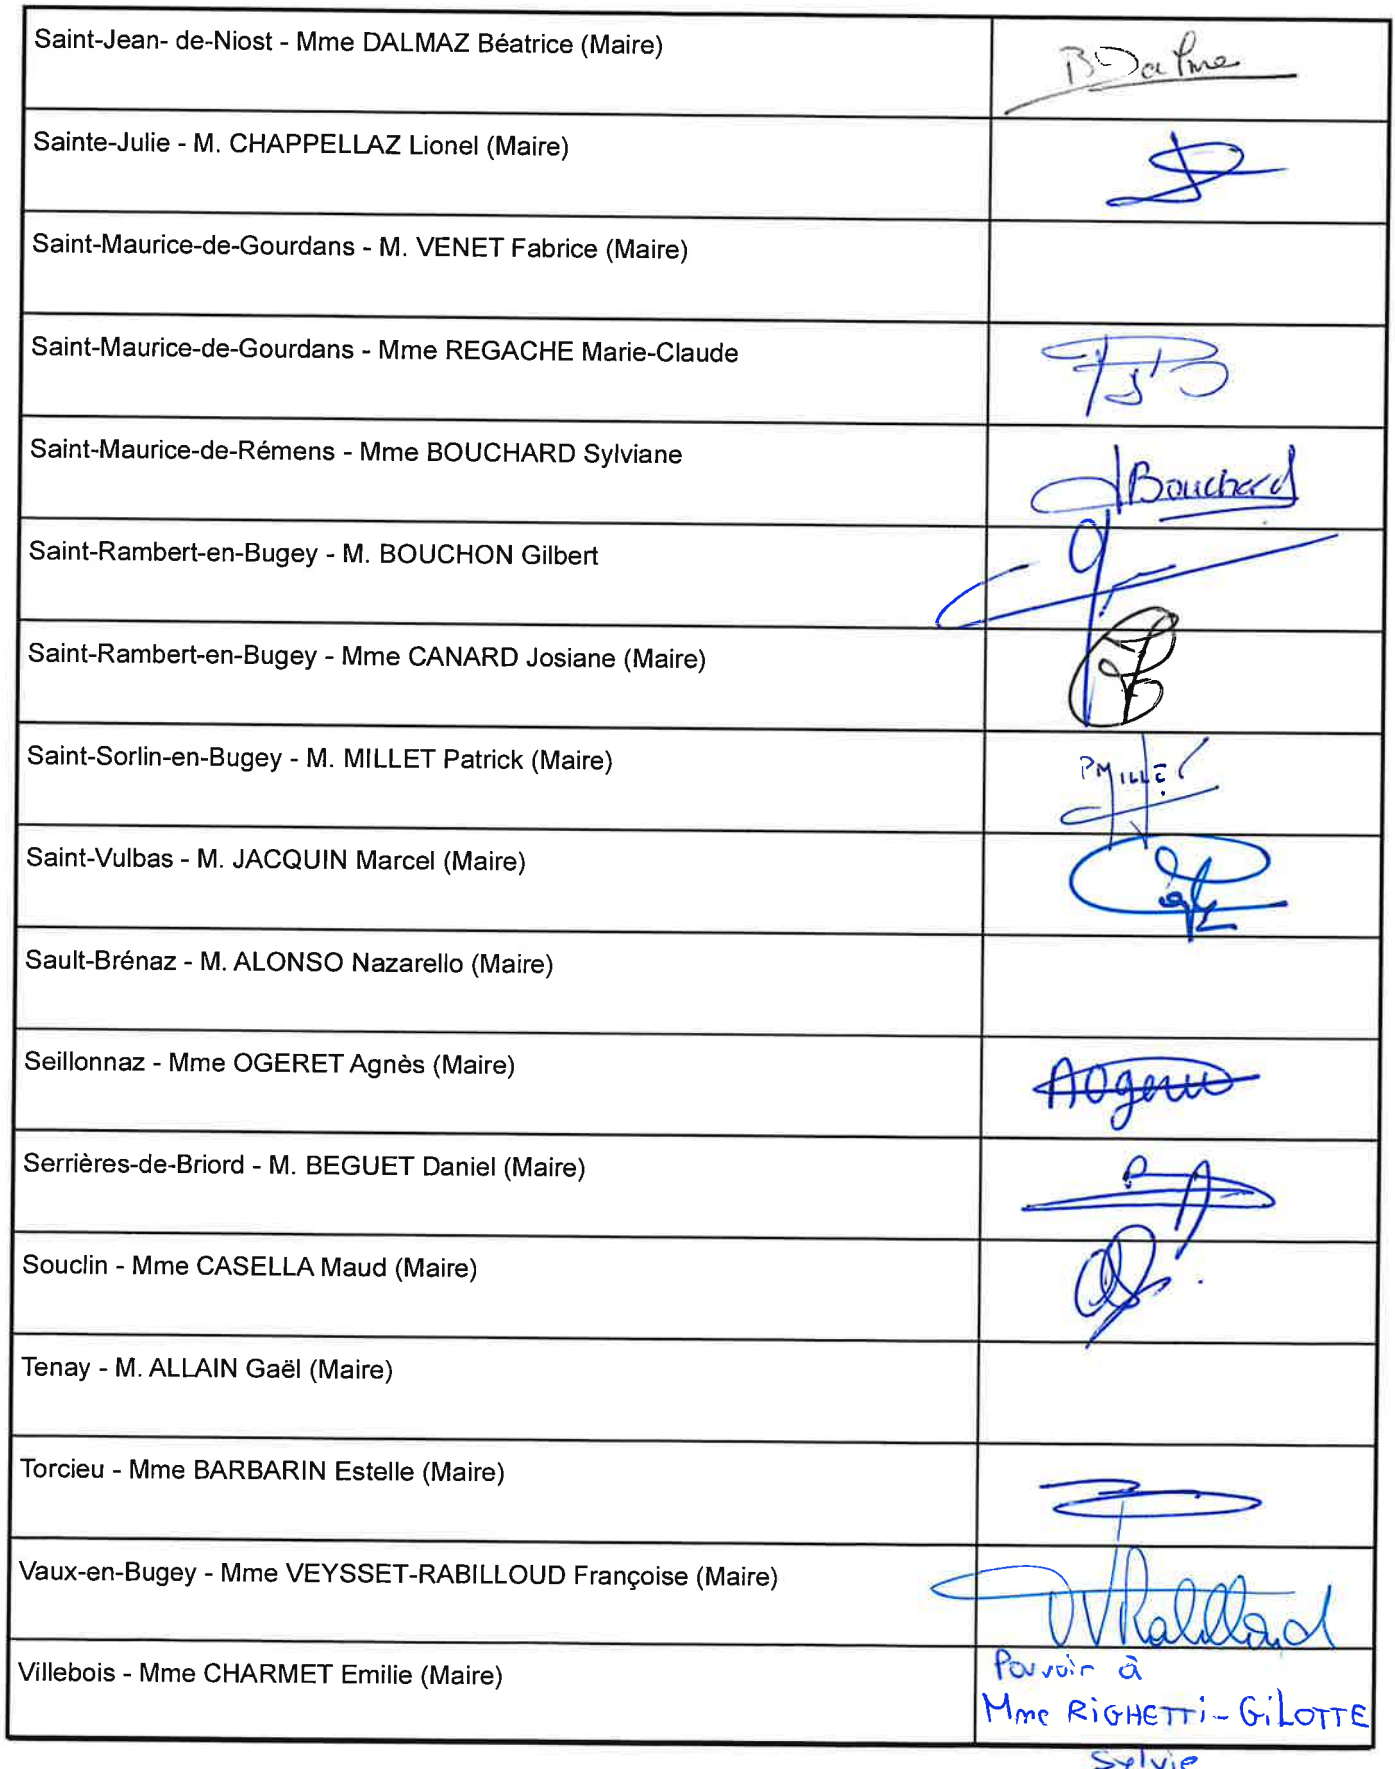 Saint-Jean- de-Niost - Mme DALMAZ Béatrice (Maire)
Sainte-Julie - M. CHAPPELLAZ Lionel (Maire)
Saint-Maurice-de-Gourdans - M. VENET Fabrice (Maire)
Saint-Maurice-de-Gourdans - Mme REGACHE Marie-Claude
Saint-Maurice-de-Rémens - Mme BOUCHARD Sylviane
Bouchard
Saint-Rambert-en-Bugey - M. BOUCHON Gilbert
Saint-Rambert-en-Bugey - Mme CANARD Josiane (Maire)
Saint-Sorlin-en-Bugey - M. MILLET Patrick (Maire)
PMILLET
Saint-Vulbas - M. JACQUIN Marcel (Maire)
Sault-Brénaz - M. ALONSO Nazarello (Maire)
Seillonnaz - Mme OGERET Agnès (Maire)
Serrières-de-Briord - M. BEGUET Daniel (Maire)
Souclin - Mme CASELLA Maud (Maire)
Tenay - M. ALLAIN Gaël (Maire)
Torcieu - Mme BARBARIN Estelle (Maire)
Vaux-en-Bugey - Mme VEYSSET-RABILLOUD Françoise (Maire)
Villebois - Mme CHARMET Emilie (Maire)
Pouvoir à
Mme RIGHETTI-GILOTTE
Sylvie